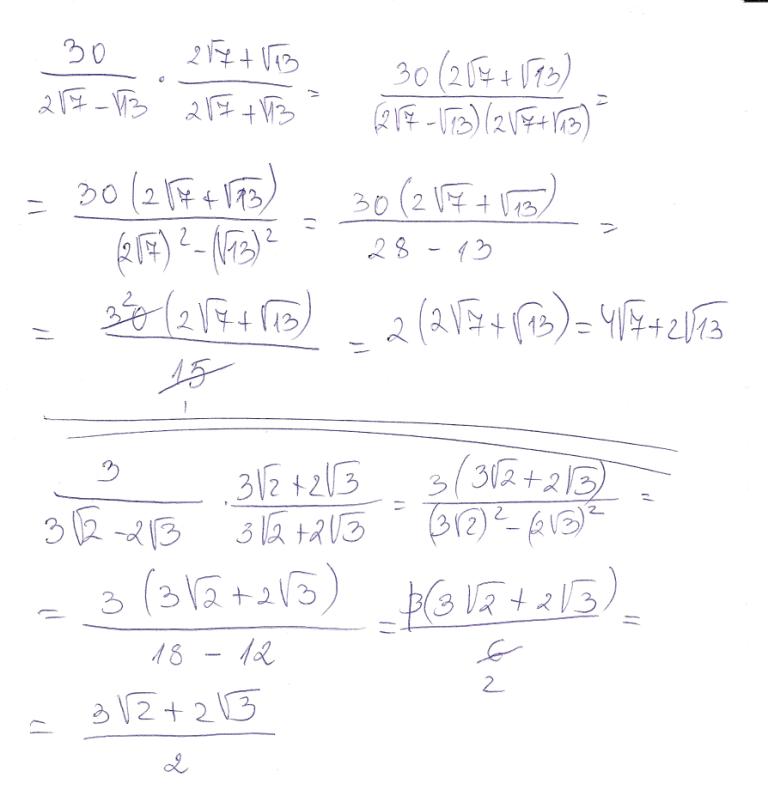 30/(2√7 − √13) · (2√7 + √13)/(2√7 + √13) = 30(2√7 + √13)/((2√7 − √13)(2√7 + √13)) =
= 30(2√7 + √13)/((2√7)² − (√13)²) = 30(2√7 + √13)/(28 − 13) =
= 30 2 (2√7 + √13)/15 1 = 2(2√7 + √13) = 4√7 + 2√13
3/(3√2 − 2√3) · (3√2 + 2√3)/(3√2 + 2√3) = 3(3√2 + 2√3)/((3√2)² − (2√3)²) =
= 3(3√2 + 2√3)/(18 − 12) = 3(3√2 + 2√3)/6 2 =
= (3√2 + 2√3)/2